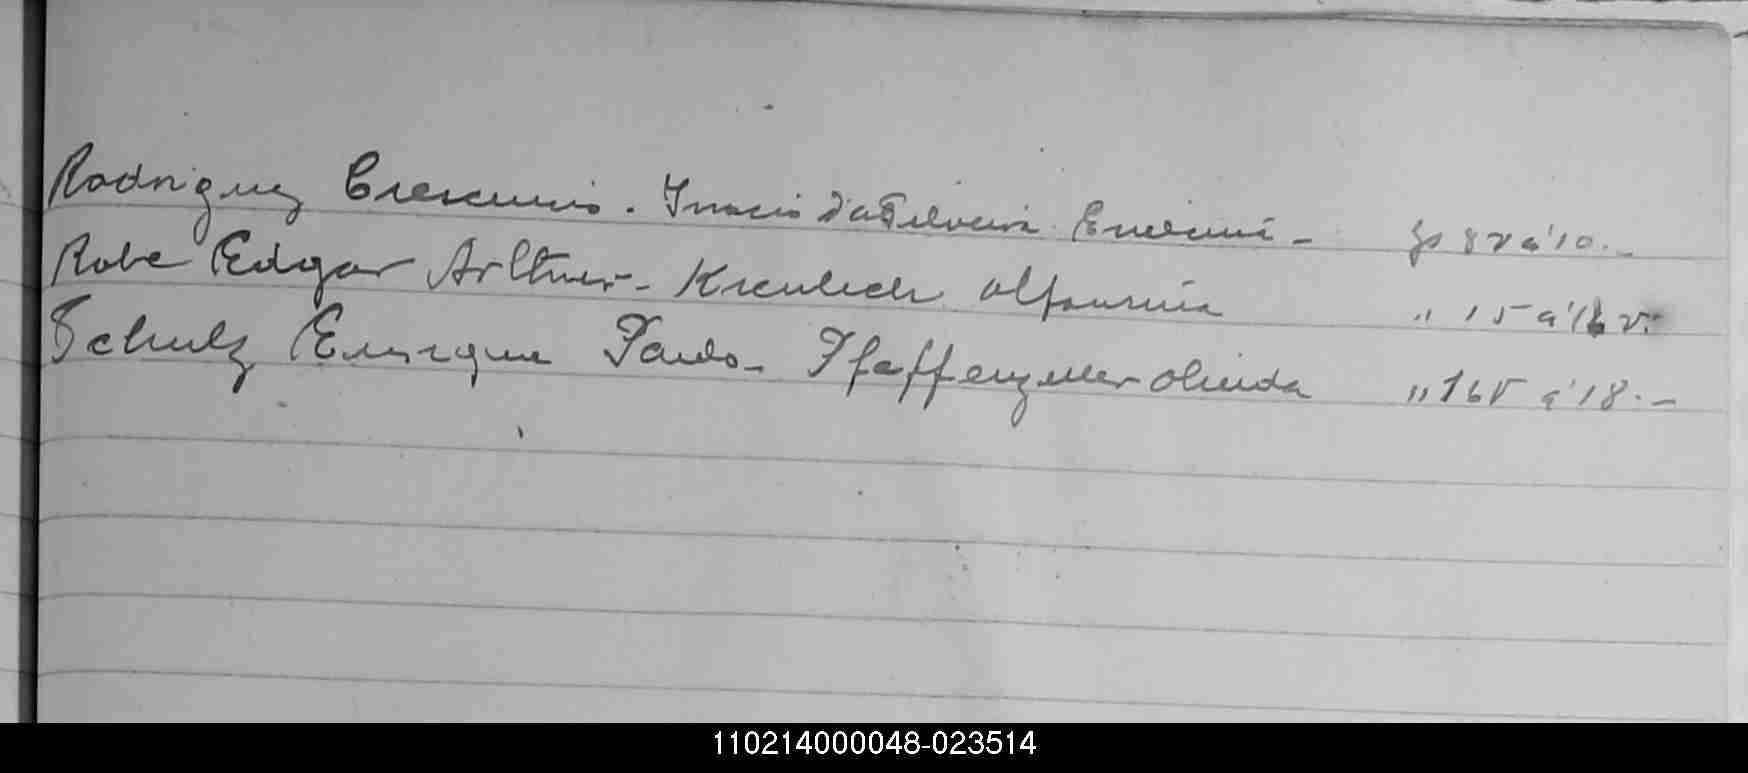 Rodriguez Crescencio. Inacio da Silveira - fs 8v a 10. -
Robe Edgar Arthur - Kreulich " 15 a 16 v.
Schulz Enrique Paulo - Pfaffenzeller Olinda " 16v a 18. -
110214000048-023514